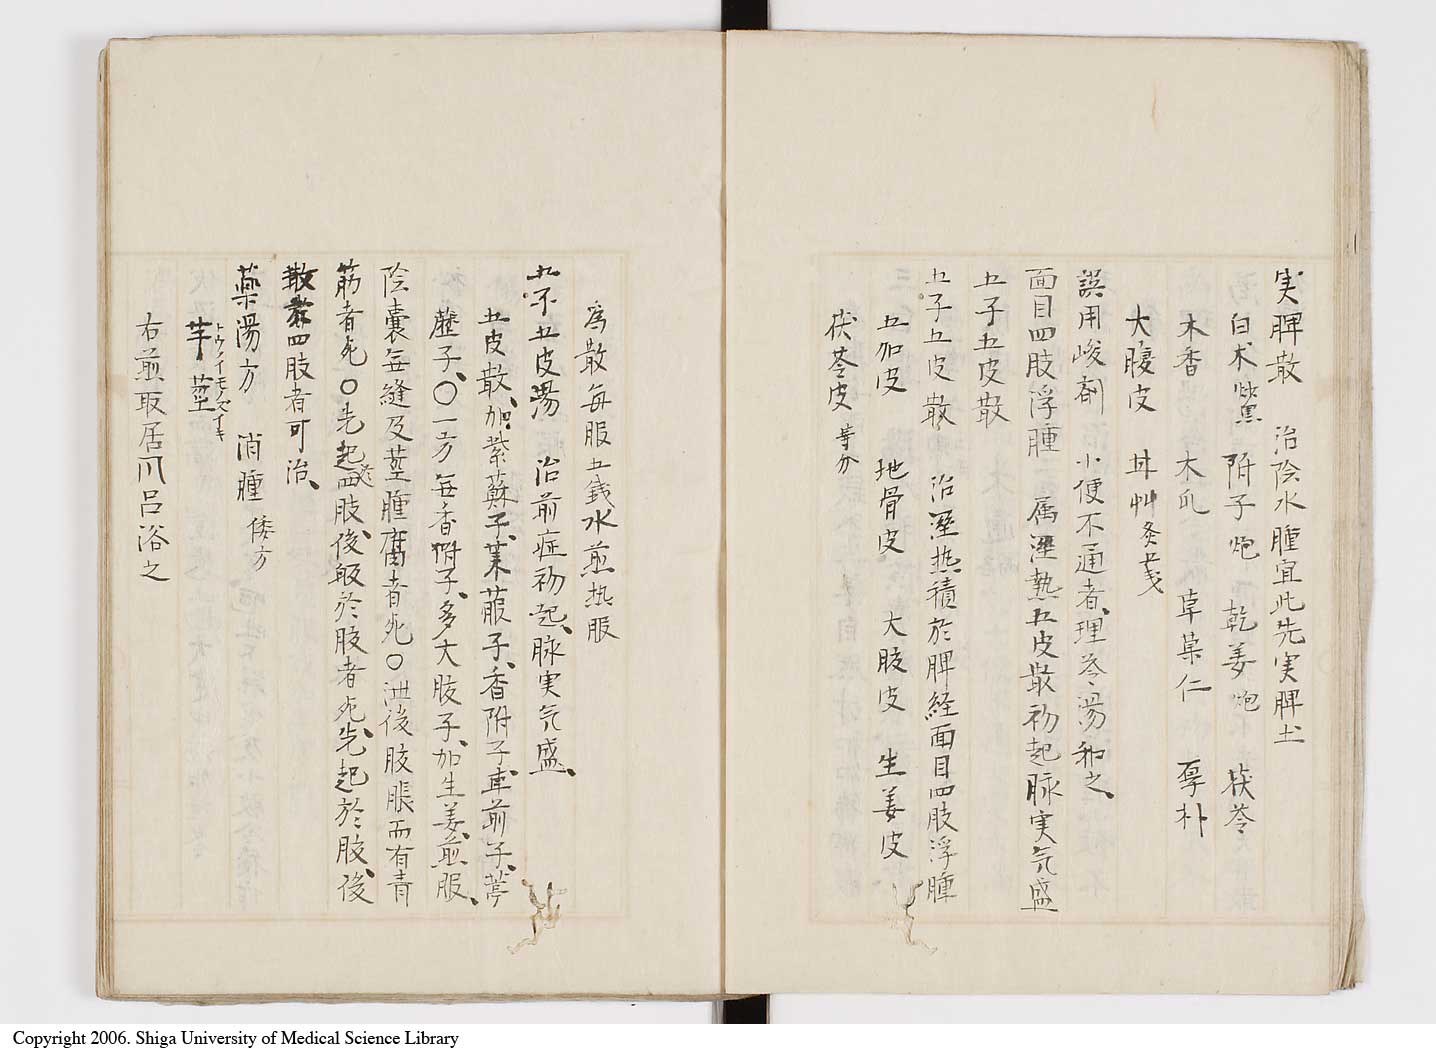 実脾散　治陰水腫宜此先実脾土
白术 炒黒　附子 炮　乾姜 炮　茯苓
木香　木瓜　草菓仁　厚朴
大腹皮　甘艸 炙 茂
誤用峻剤小便不通者、理苓湯和之、
面目四肢浮腫　属湿熱五皮散初起脉実気盛
五子五皮散
五子五皮散　治湿热積於脾経面目四肢浮腫
五加皮　地骨皮　大腹皮　生姜皮
茯苓皮 等分
為散每服五銭水煎热服
五子五皮湯　治前症初起、脉実気盛、
五皮散、加紫蘇子、莱菔子、香附子、車前子、葶
藶子、〇一方每香附子、多大腹子、加生姜、煎服、
陰囊每縫及茎腫腐者死〇 後腹脹而有青
筋者死〇先起四肢、後皈於腹者死、先起於腹、後
散 四肢者可治、
薬湯方　消腫　倭方
芋茎 トウノイモノズイキ
右煎取居川呂浴之
Copyright 2006. Shiga University of Medical Science Library